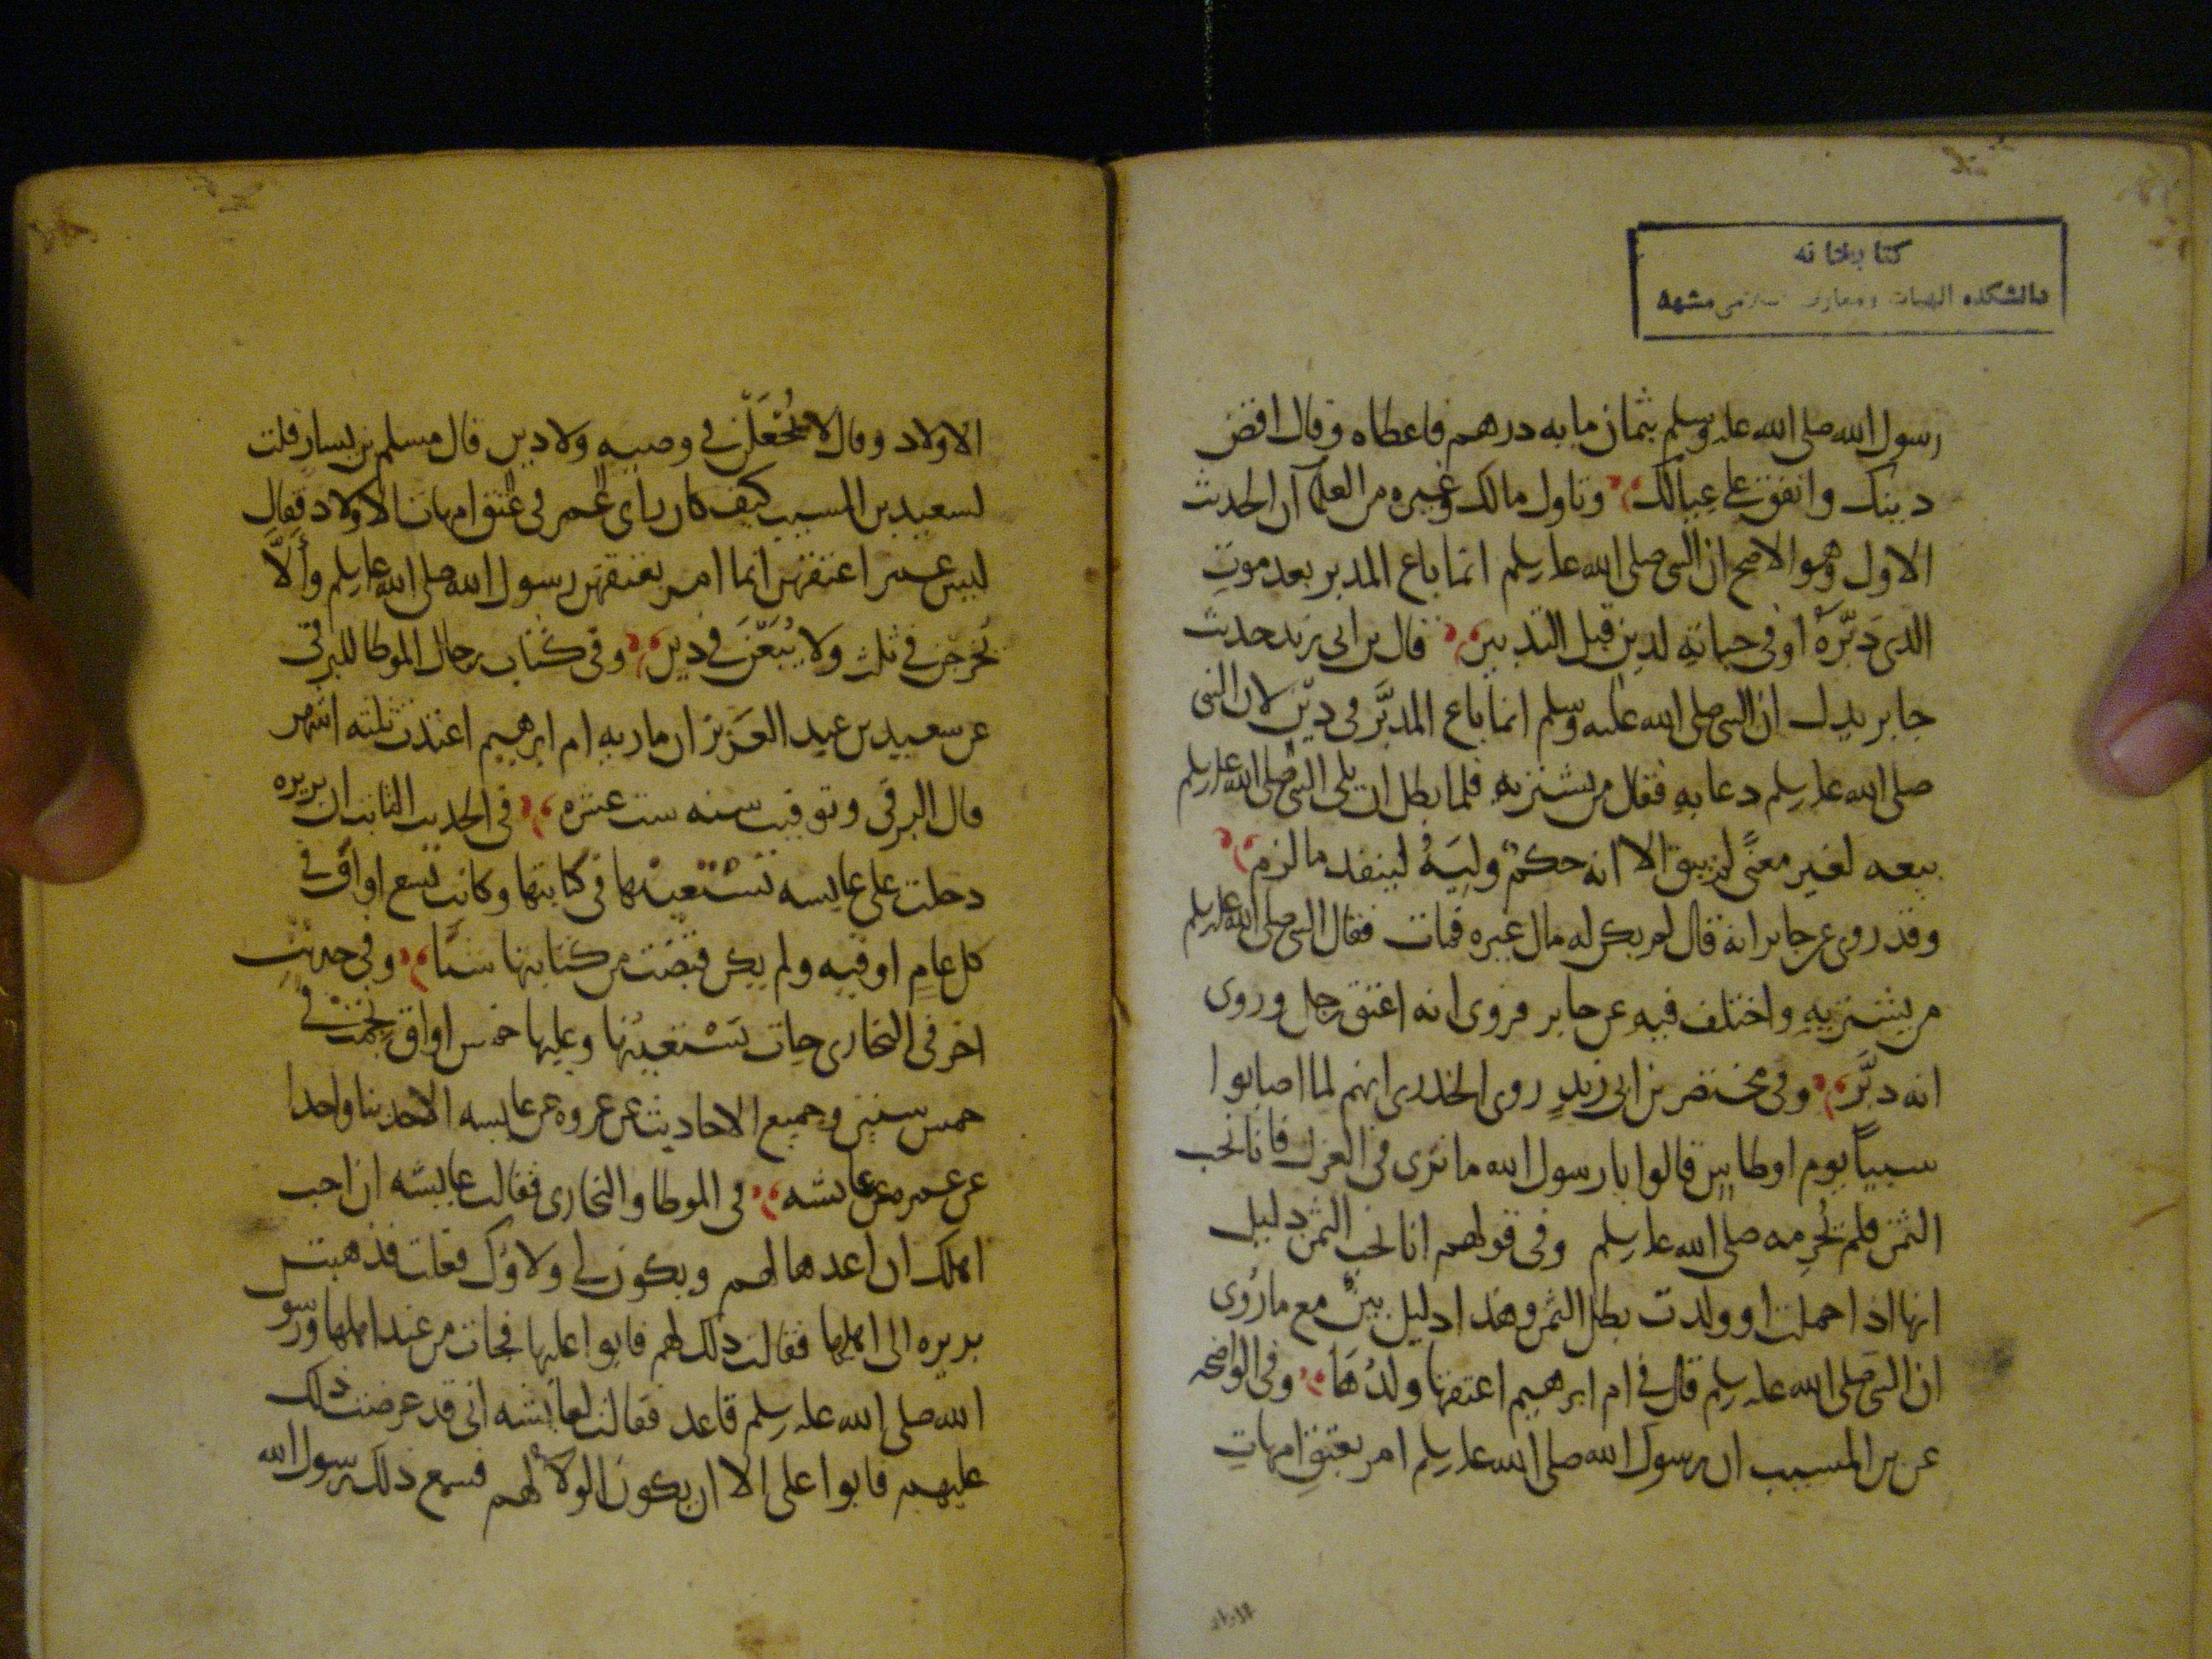 كتابخانه
دانشكده الهيات ومعارف اسلامى مشهد
رسول الله صلى الله عليه وسلم بثمان مايه درهم فاعطاه وقال اقض
دينك وانفق على عيالك وتاول مالك وغيره من العلما ان الحديث
الاول وهو الاصح ان النبى صلى الله عليه وسلم انما باع المدبر بعد موت
الذى دَبَّرَهُ او فى حياته لدين قبل التدبير قال بن ابى زيد حديث
جابر يدل ان النبى صلى الله عليه وسلم انما باع المدبَّر فى دين لان النبى
صلى الله عليه وسلم دعا به فقال من يشتريه فلما بطل ان يلى النبى صلى الله عليه وسلم
بيعه لغير معنًى لم يبق الا انه حكمٌ وليَهُ لينفذ ما لزم
وقد روى عن جابر انه قال لم يكن له مال غيره فمات فقال النبى صلى الله عليه وسلم
من يشتريه واختلف فيه عن جابر فروى انه اعتق رجل وروى
انه دبَّر وفى مختصر بن ابى زيدٍ روى الخدرى انهم لما اصابوا
سبياً يوم اوطاس قالوا يا رسول الله ما ترى فى العزل فانا نحب
الثمن فلم يُحرِمه صلى الله عليه وسلم وفى قولهم انا نحب الثمن دليل
انها اذا حملت او ولدت بطل الثمن وهذا دليل بينٌ مع ما رُوى
ان النبى صلى الله عليه وسلم قال فى ام ابرهيم اعتقها ولدُهَا وفى الواضحه
عن بن المسيب ان رسول الله صلى الله عليه وسلم امر بعتقِ امهاتِ
الاولاد وقال لا يُجْعَلْنَ فى وصيه ولا دين قال مسلم بن يسار قلت
لسعيد بن المسيب كيف كان راى عُمر فى عتق امهات الاولاد فقال
ليس عمر اعتقهن انما امر بعتقهن رسول الله صلى الله عليه وسلم وأَلَّا
يخرجن فى ثلث ولا يُبَعْنَ فى دين وفى كتاب رجال الموطا للبرقى
عن سعيد بن عبد العَزيز ان ماريه ام ابرهيم اعتدت ثلثه اشهر
قال البرقى وتوفيت سنه ست عشره فى الحديث الثابت ان بريره
دخلت على عايشه تَسْتَعينُها فى كتابتها وكانت تسع اواق فى
كل عامٍ اوقيه ولم يكن قبضت من كتابتها شيًا وفى حديث
اخر فى البخارى جات تَسْتعينُها وعليها خمس اواق نُجمت فى
خمس سنين وجميع الاحاديث عن عروه عن عايشه الا حديثا واحدا
عن عمره عن عايشه فى الموطا والبخارى فقالت عايشه ان احب
اهلك ان اعدها لهم ويكون لى ولاؤك فعلت فذهبت
بريره الى اهلها فقالت ذلك لهم فابوا عليها فجات من عند اهلها ورسول
الله صلى الله عليه وسلم قاعد فقالت لعايشه انى قد عرضت ذلك
عليهم فابوا على الا ان يكون الولاء لهم فسمع ذلك رسول الله